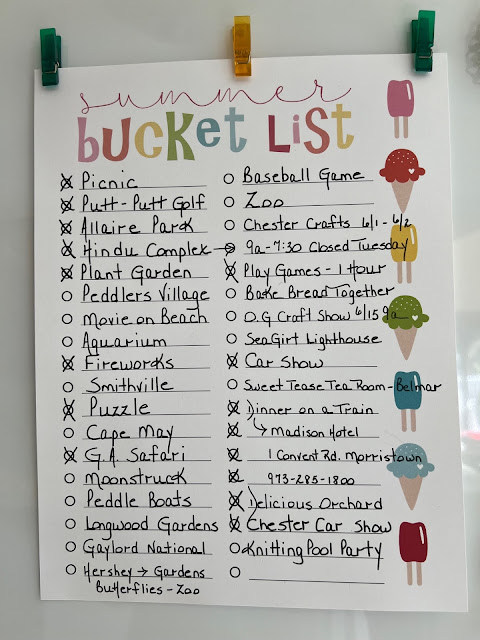 summer
bucket list
Picnic
Putt-Putt Golf
Allaire Park
Hindu Complex →
Plant Garden
Peddlers Village
Movie on Beach
Aquarium
Fireworks
Smithville
Puzzle
Cape May
G.A. Safari
Moonstruck
Peddle Boats
Longwood Gardens
Gaylord National
Hershey → Gardens
Butterflies - Zoo
Baseball Game
Zoo
Chester Crafts 6/1 - 6/2
9a-7:30 Closed Tuesday
Play Games - 1 Hour
Bake Bread Together
O.G Craft Show 6/15 9a
Sea Girt Lighthouse
Car Show
Sweet Tease Tea Room - Belmar
Dinner on a Train
↳ Madison Hotel
1 Convent Rd. Morristown
973-285-1800
Delicious Orchard
Chester Car Show
Knitting Pool Party